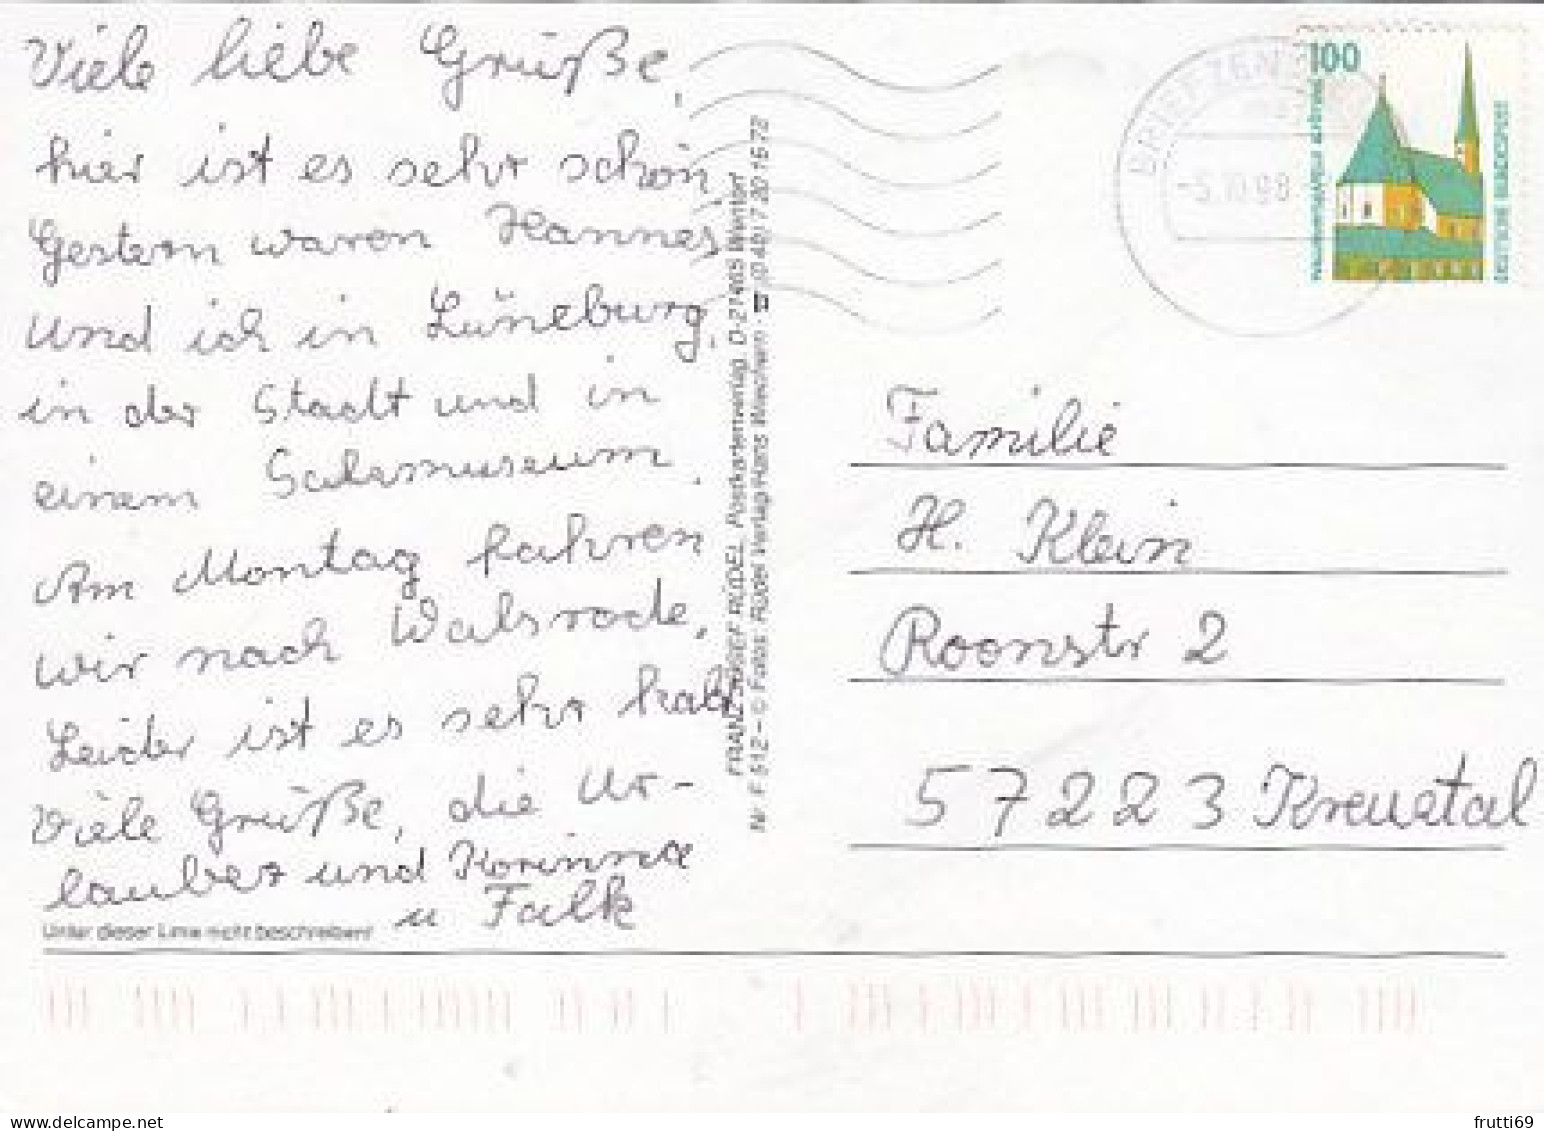 Viele liebe Grüße,
hier ist es sehr schön
Gestern waren Hannes
und ich in Lüneburg,
in der Stadt und in
einem Salzmuseum.
Am Montag fahren
wir nach Walsrode,
Leider ist es sehr kalt
Viele Grüße, die Ur-
lauber und Korinna
u Falk
Unter dieser Linie nicht beschreiben!
FRANZ JOSEF RÜDEL, Postkartenverlag, D-21465 Wentorf
Nr. F 512 – © Fotos: Rüdel Verlag/Hans Waschem · ☎ (0 40) 7 20 15 72
BRIEFZEN
-5.10.98
100
WALLFAHRTSKAPELLE ALTÖTTING
DEUTSCHE BUNDESPOST
Familie
H. Klein
Roonstr 2
57223 Kreuztal
frutti69